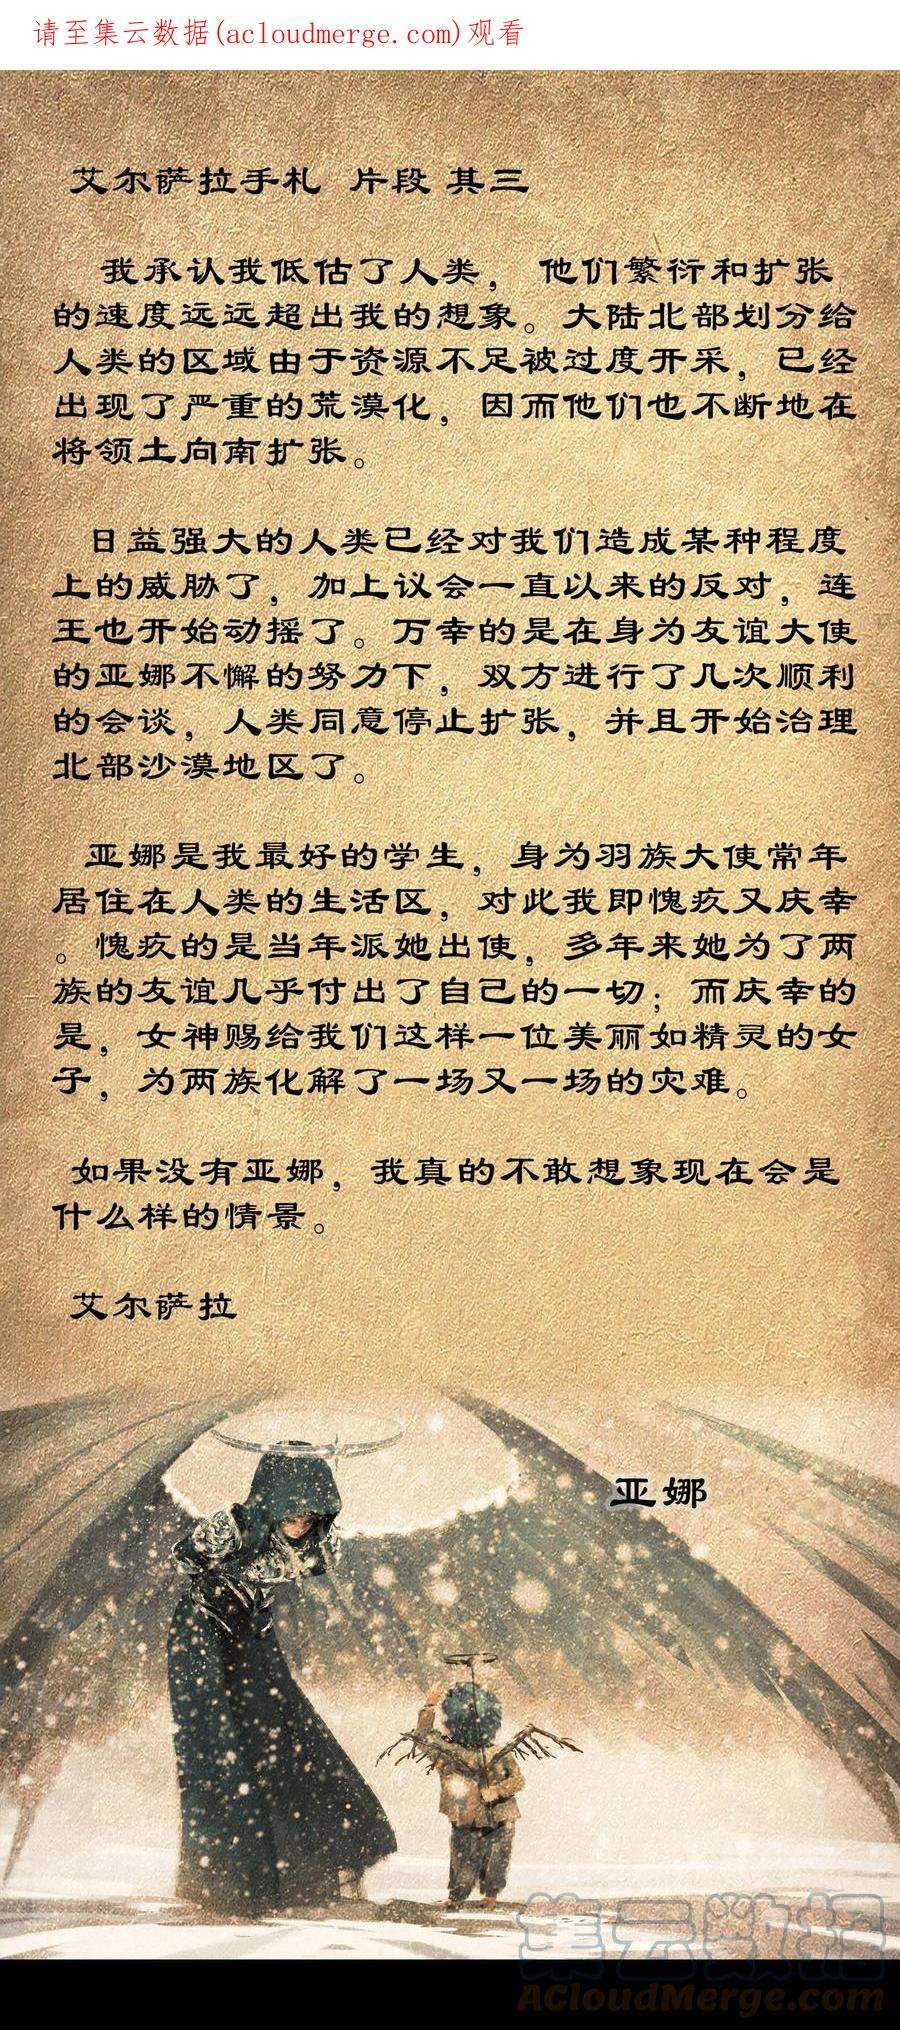 请至集云数据(acloudmerge.com)观看
艾尔萨拉手札 片段 其三
我承认我低估了人类，他们繁衍和扩张
的速度远远超出我的想象。大陆北部划分给
人类的区域由于资源不足被过度开采，已经
出现了严重的荒漠化，因而他们也不断地在
将领土向南扩张。
日益强大的人类已经对我们造成某种程度
上的威胁了，加上议会一直以来的反对，连
王也开始动摇了。万幸的是在身为友谊大使
的亚娜不懈的努力下，双方进行了几次顺利
的会谈，人类同意停止扩张，并且开始治理
北部沙漠地区了。
亚娜是我最好的学生，身为羽族大使常年
居住在人类的生活区，对此我即愧疚又庆幸
。愧疚的是当年派她出使，多年来她为了两
族的友谊几乎付出了自己的一切；而庆幸的
是，女神赐给我们这样一位美丽如精灵的女
子，为两族化解了一场又一场的灾难。
如果没有亚娜，我真的不敢想象现在会是
什么样的情景。
艾尔萨拉
亚娜
集云数据
ACloudMerge.com